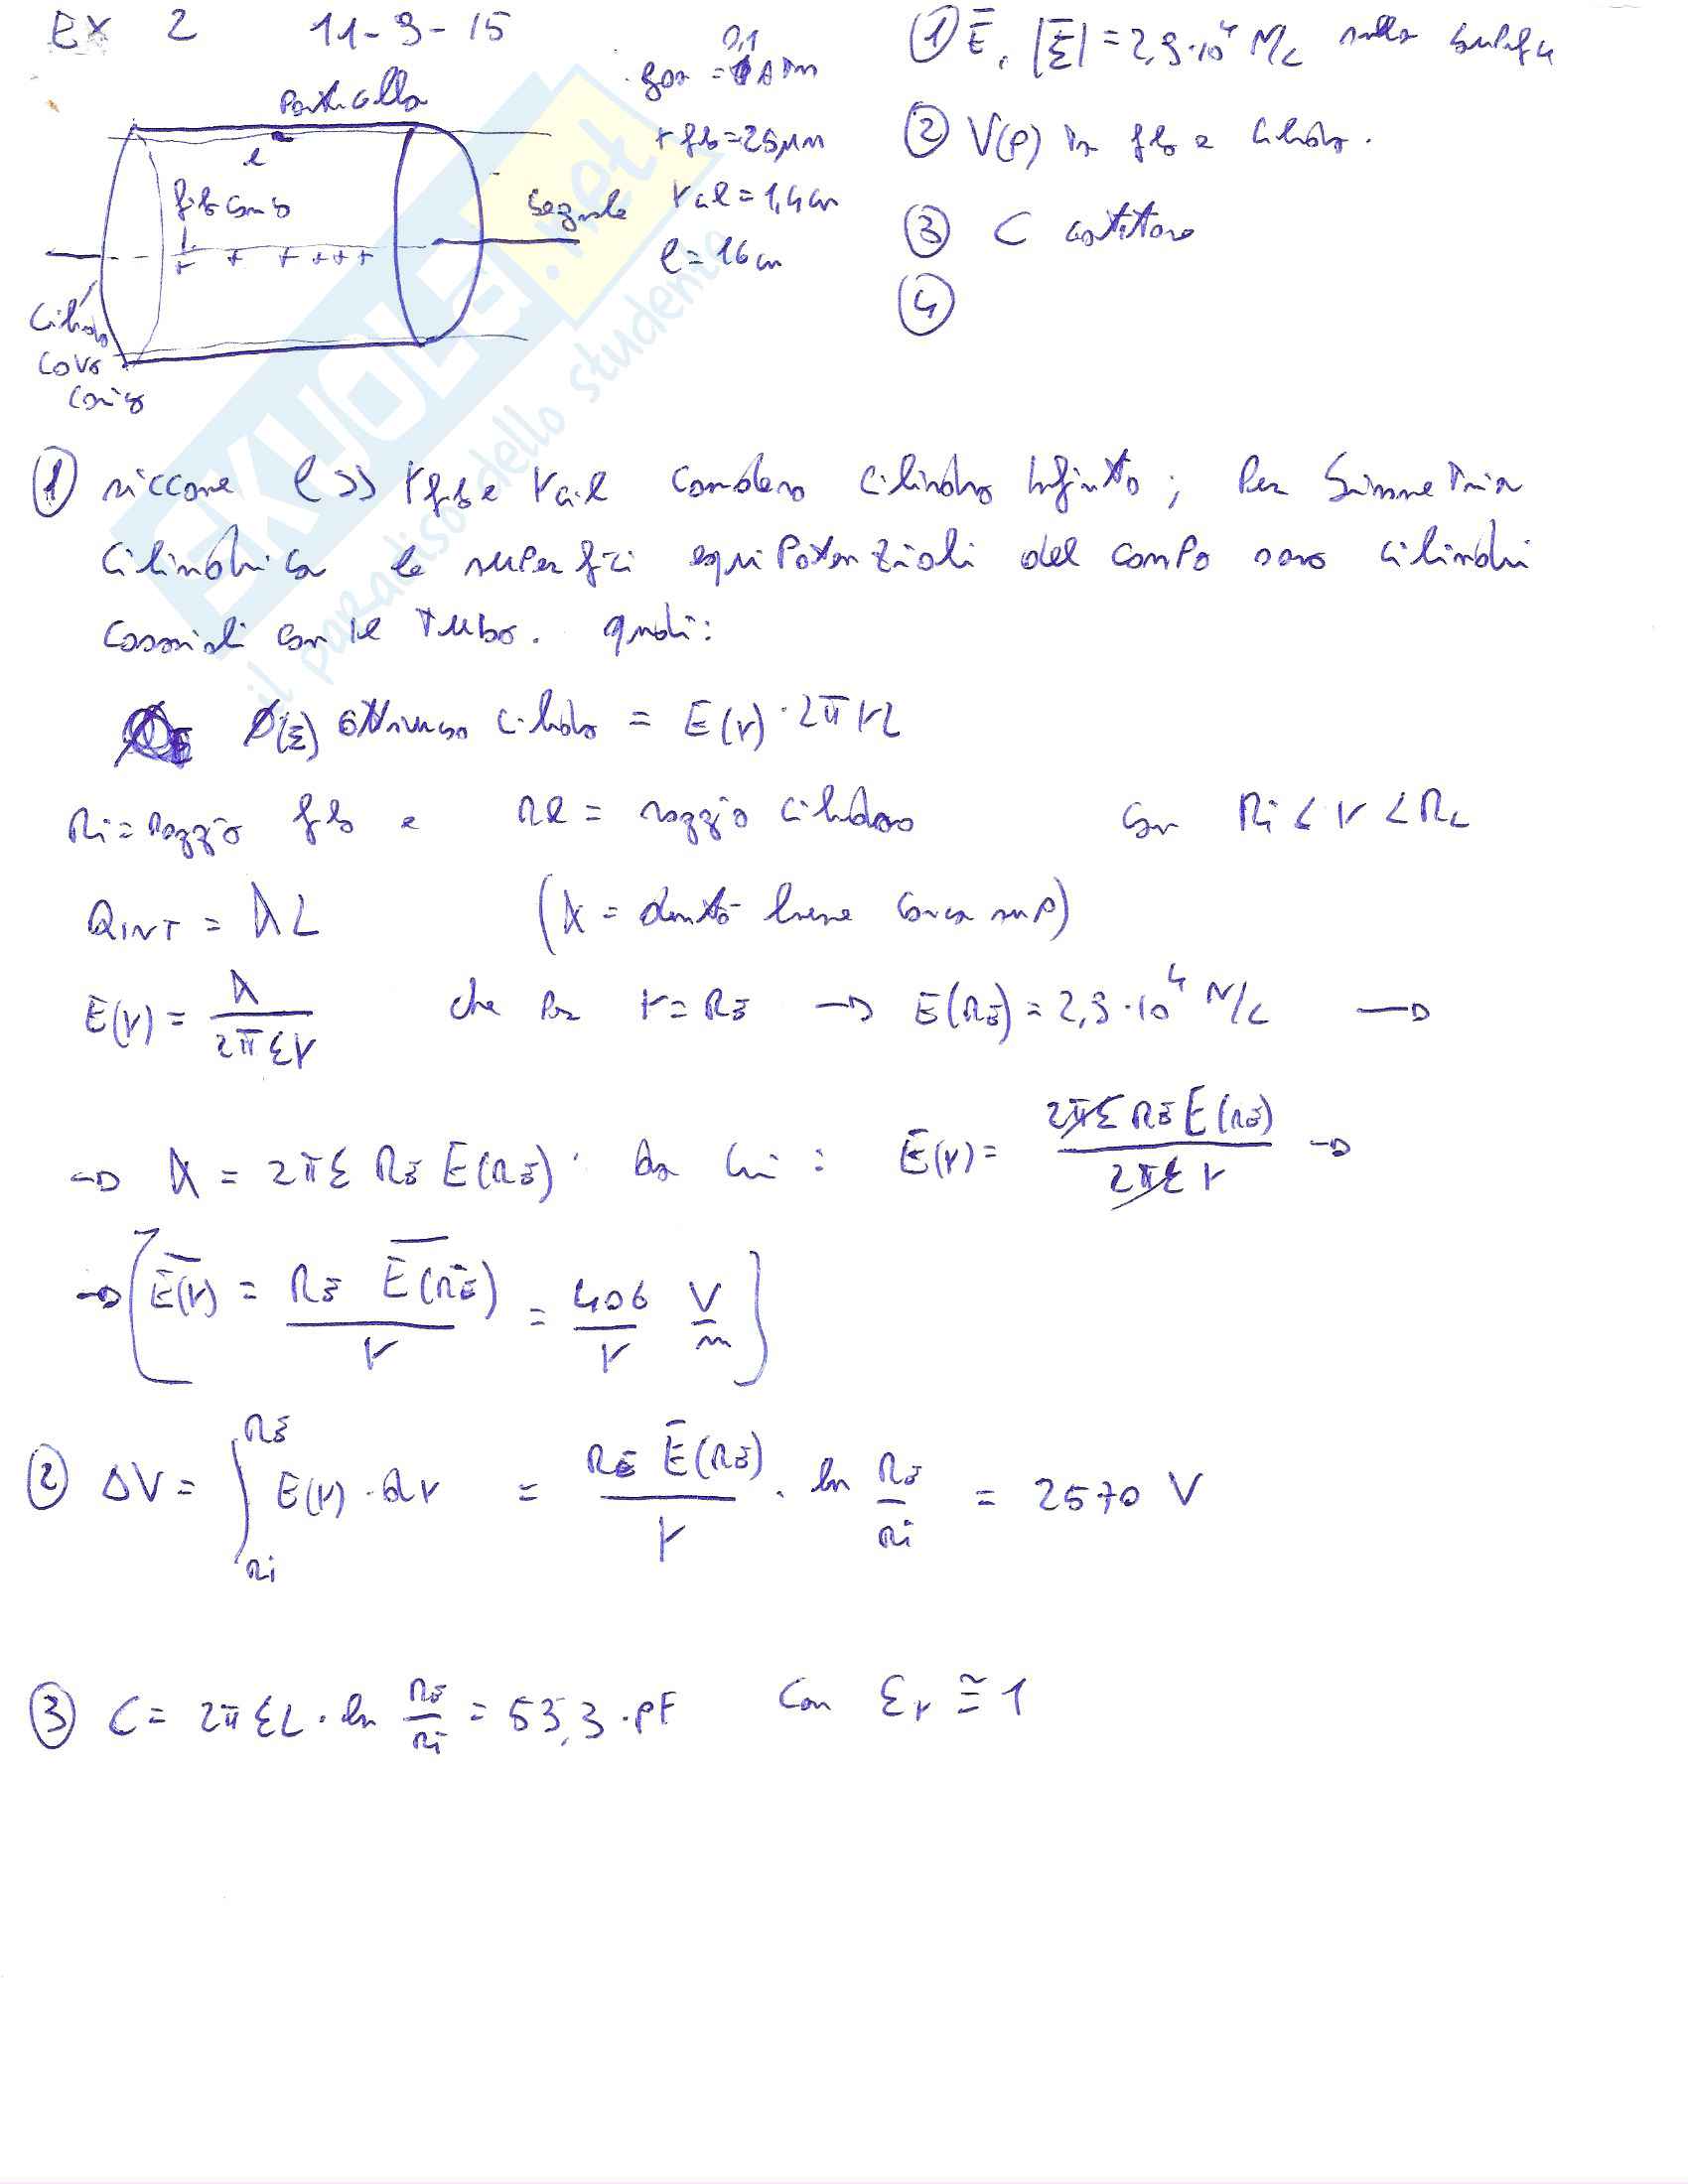 EX 2 11-9-15
Particella
e
filo carico
+ + + + + +
segnale
cilindro
cavo
carico
0,1
gas = atm
r filo = 25 μm
r cil = 1,4 cm
l = 16 cm
① E̅, |E̅| = 2,9·10⁴ N/C sulla superfice
② V(P) tra filo e cilindro.
③ C
④
① siccome l >> r filo e r cil considero cilindro infinito; per simmetria
cilindrica le superfici equipotenziali del campo sono cilindri
coassiali con il tubo. quindi:
Φ(E) attraverso cilindro = E(r)·2πrL
Ri = raggio filo e RE = raggio cilindro con Ri < r < RE
QINT = λL (λ = densità lineare carica sup)
E(r) = λ / 2πεr che per r = RE → E(RE) = 2,9·10⁴ N/C →
→ λ = 2πε RE E(RE). da cui: E(r) = 2πε RE E(RE) / 2πε r →
→ [E̅(r) = RE E̅(RE) / r = 406 / r V/m]
② ΔV = ∫ Ri RE E(r)·dr = RE E̅(RE) / r · ln RE/Ri = 2570 V
③ C = 2πεL · ln RE/Ri = 53,3 · pF con εr ≅ 1
EKUOLA.net
il paradiso dello studente